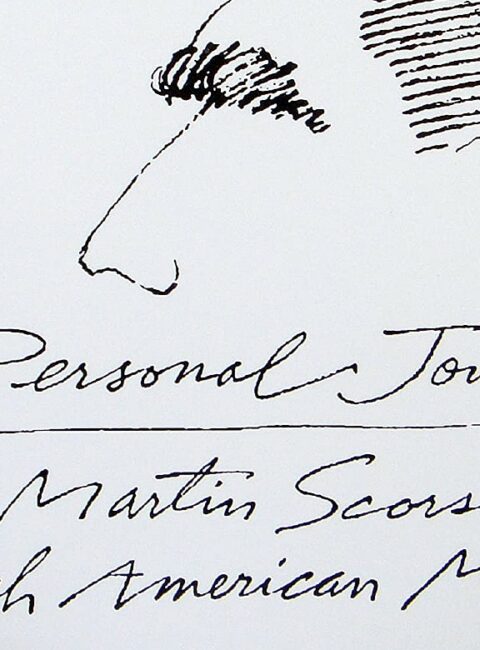 Personal Jou
Martin Scors
h American M